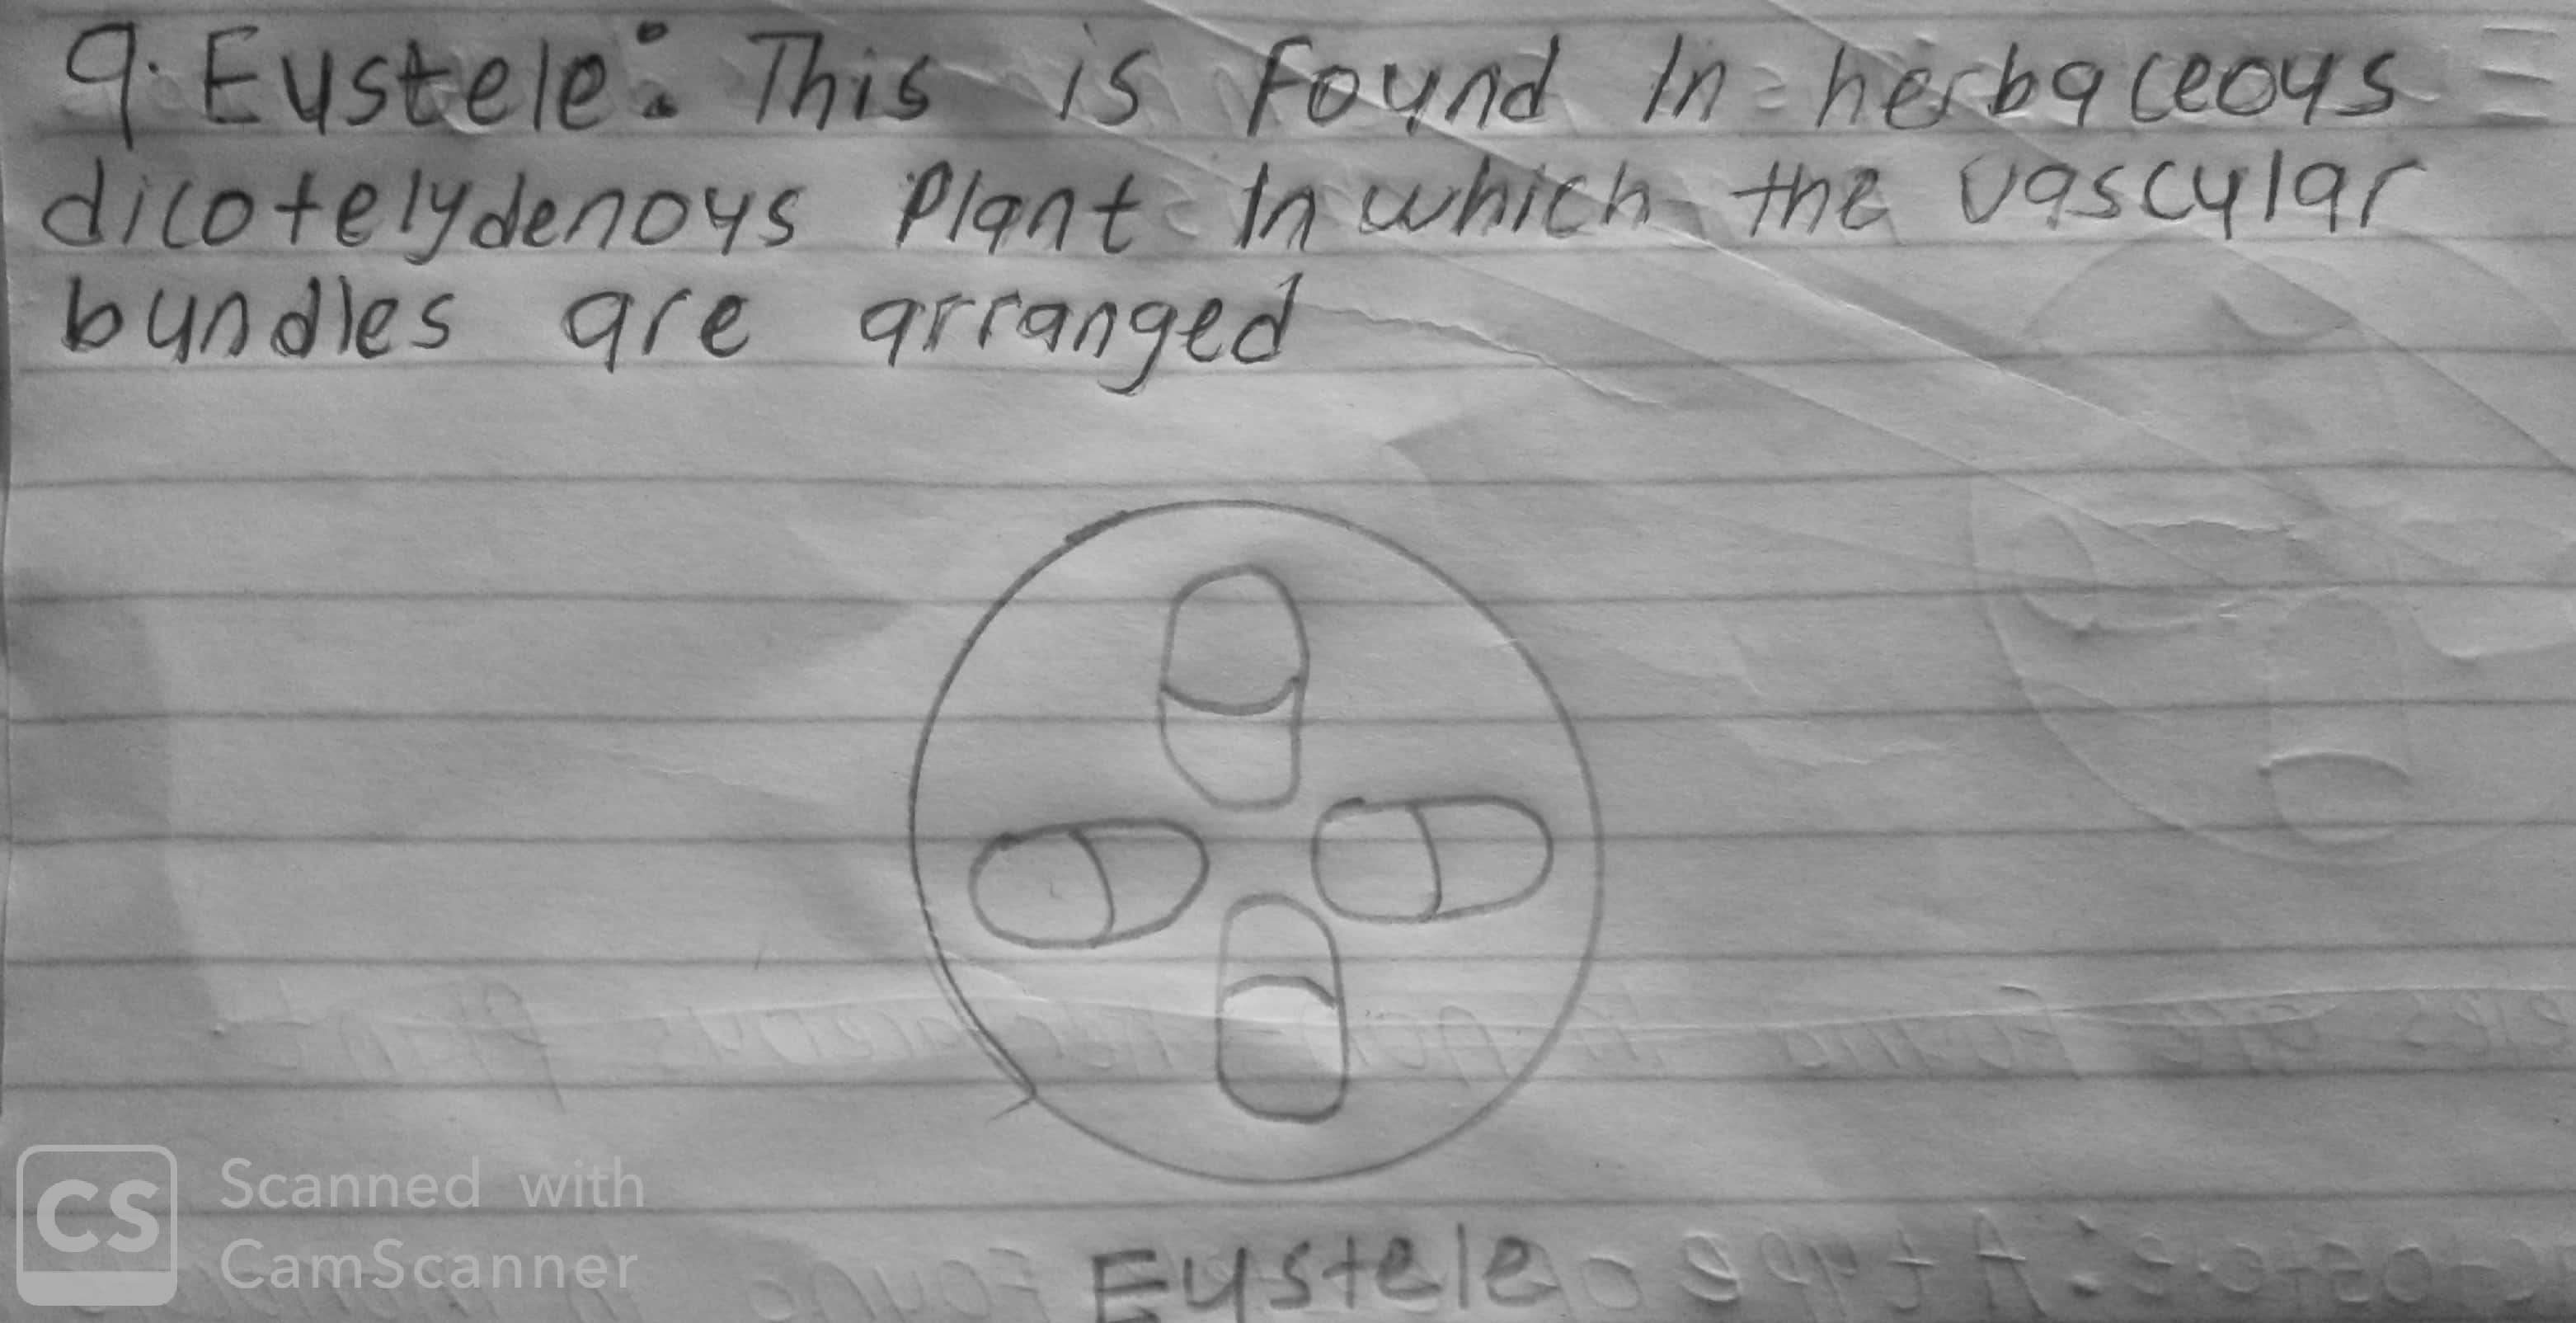 9. Eustele: This is found in herbaceous
dicotelydenous plant in which the vascular
bundles are arranged
Eustele
CS Scanned with
CamScanner